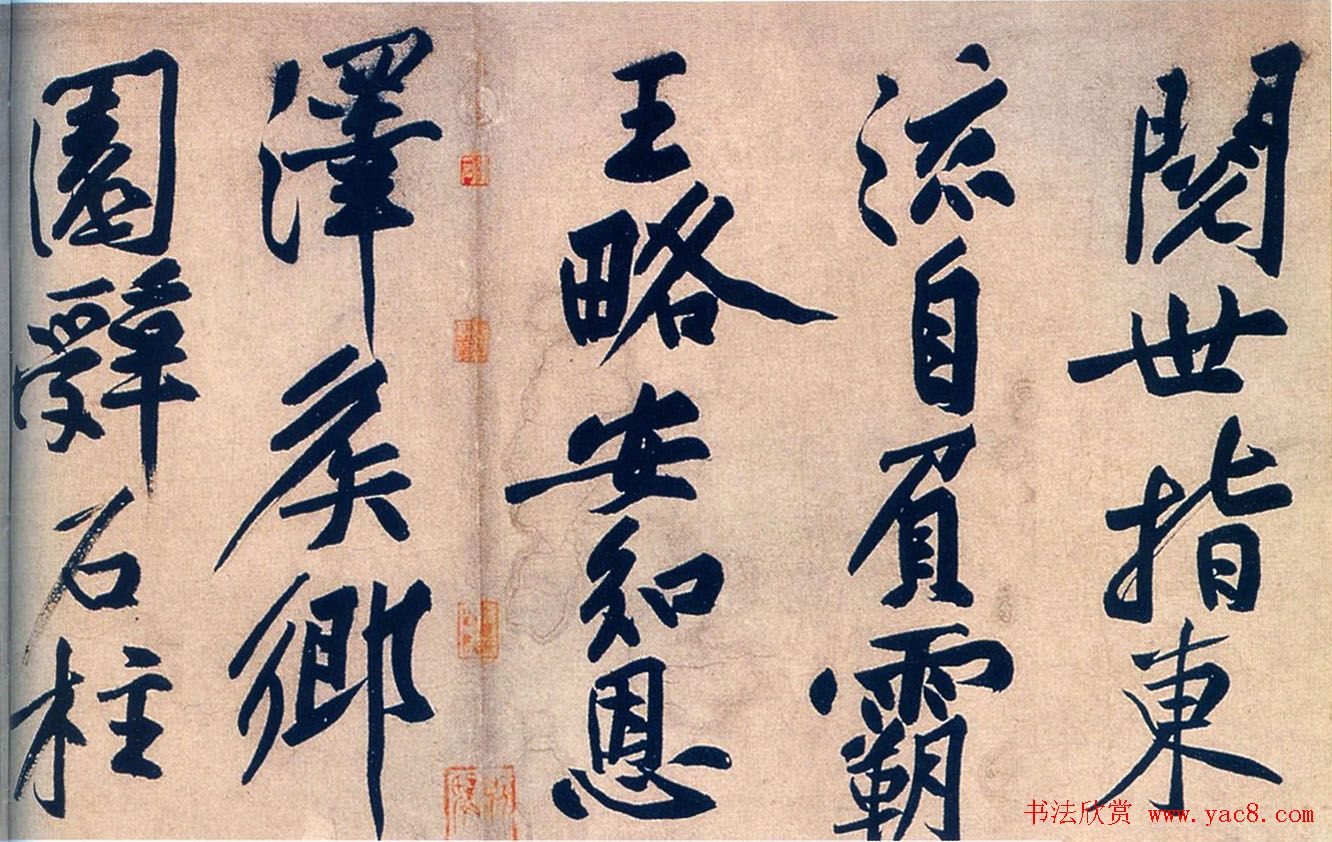 閱世指東
流自負霸
王略安知恩
澤矦鄉
園辭石柱
书法欣赏 www.yac8.com